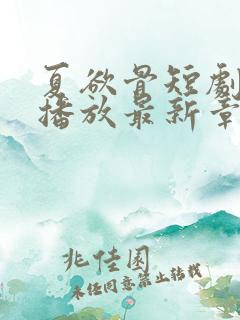 夏欲骨短劇
播放最新章
兆佳園
未经同意禁止转载